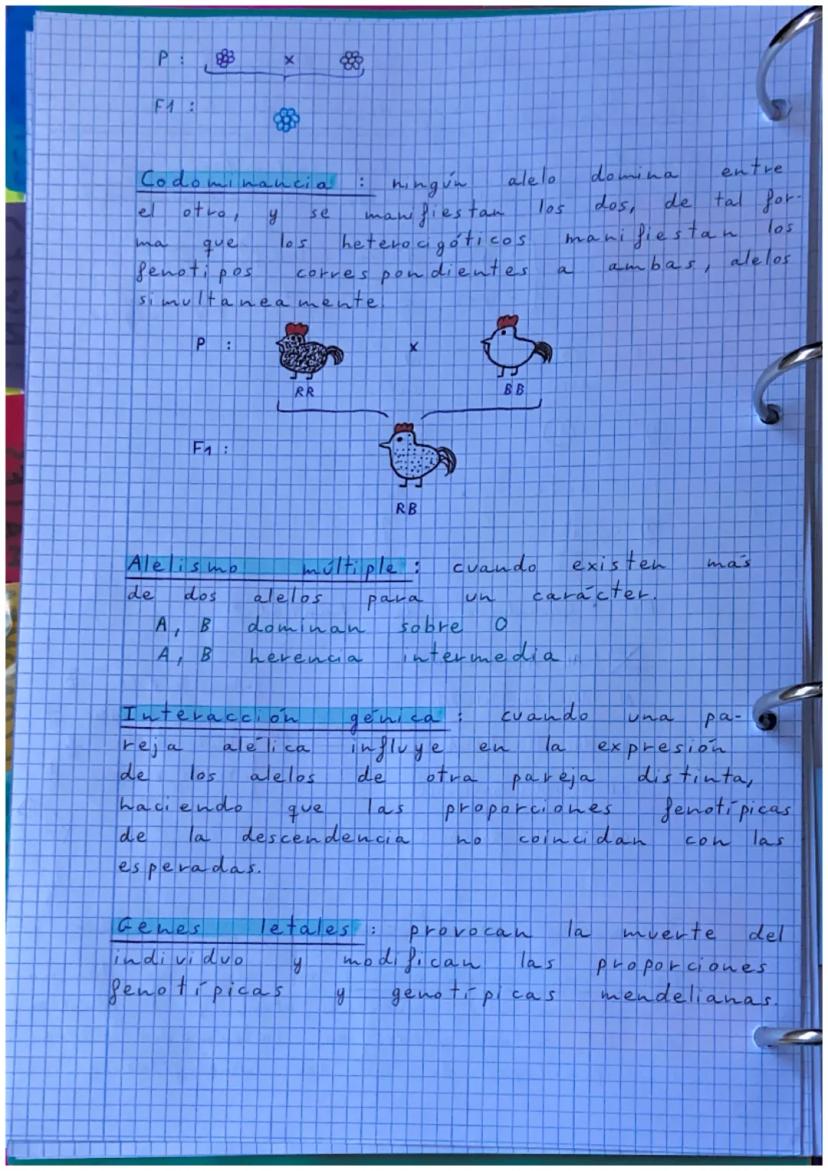 P : x
F1 :
Codominancia : ningún alelo domina entre
el otro, y se manifiestan los dos, de tal for-
ma que los heterocigóticos manifiestan los
fenotipos correspondientes a ambas, alelos
simultaneamente.
P : x
RR BB
F1 :
RB
Alelismo múltiple : cuando existen más
de dos alelos para un carácter.
A, B dominan sobre O
A, B herencia intermedia
Interacción génica : cuando una pa-
reja alélica influye en la expresión
de los alelos de otra pareja distinta,
haciendo que las proporciones fenotípicas
de la descendencia no coincidan con las
esperadas.
Genes letales : provocan la muerte del
individuo y modifican las proporciones
fenotípicas y genotípicas mendelianas.